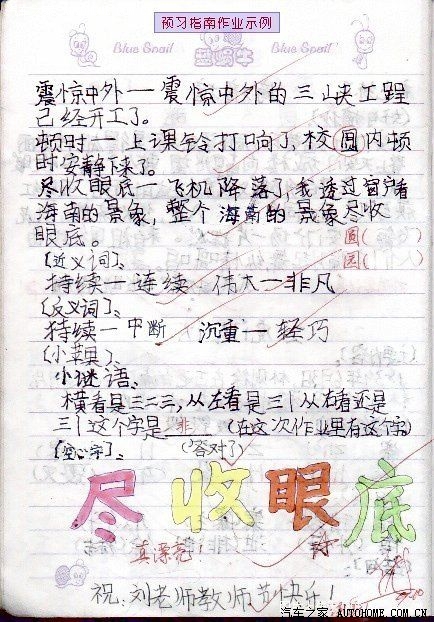 预习指南作业示例
Blue Snail 蓝蜗牛 Blue Snail
震惊中外—震惊中外的三峡工程
已经开工了。
顿时—上课铃打响了,校圆内顿
时安静下来了。
尽收眼底—飞机降落了,我透过窗户看
海南的景象,整个海南的景象尽收
眼底。
圆( )
园( )
〔近义词〕、
持续—连续 伟大—非凡
〔反义词〕、
持续—中断 沉重—轻巧
〔小苹果〕、
小谜语、
横看是三二三,从左看是三丨从右看还是
三丨这个字是 非 (在这次作业里有这个字)
〔空心字〕、 (答对了)
尽收眼底
真漂亮!
祝:刘老师教师节快乐!
汽车之家 AUTOHOME.COM.CN